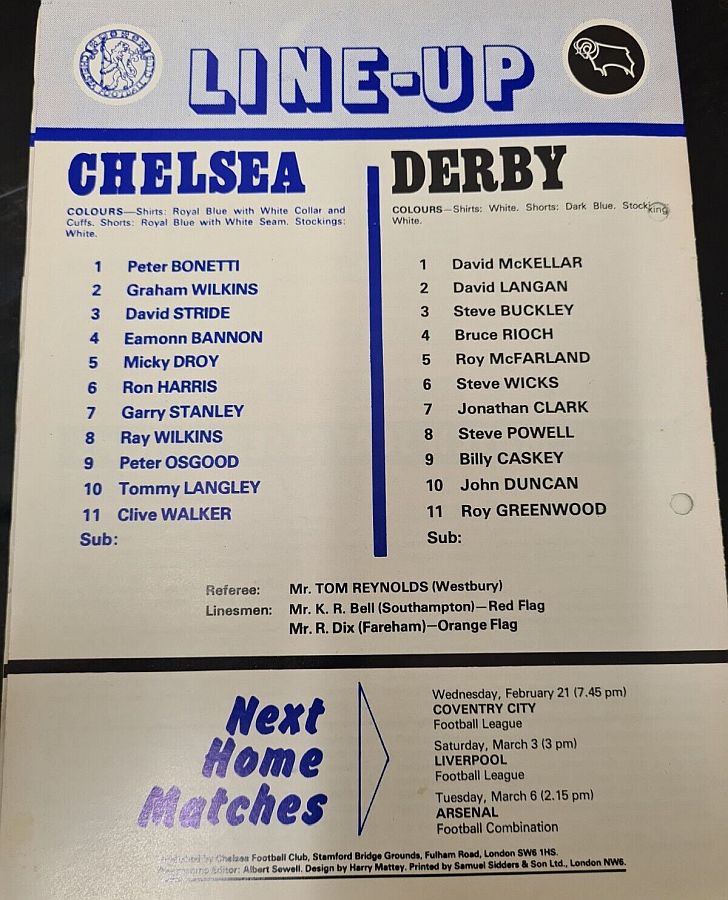 CHELSEA FOOTBALL CLUB
LINE-UP
CHELSEA
COLOURS—Shirts: Royal Blue with White Collar and
Cuffs. Shorts: Royal Blue with White Seam. Stockings:
White.
1 Peter BONETTI
2 Graham WILKINS
3 David STRIDE
4 Eamonn BANNON
5 Micky DROY
6 Ron HARRIS
7 Garry STANLEY
8 Ray WILKINS
9 Peter OSGOOD
10 Tommy LANGLEY
11 Clive WALKER
Sub:
DERBY
COLOURS—Shirts: White. Shorts: Dark Blue. Stocking
White.
1 David McKELLAR
2 David LANGAN
3 Steve BUCKLEY
4 Bruce RIOCH
5 Roy McFARLAND
6 Steve WICKS
7 Jonathan CLARK
8 Steve POWELL
9 Billy CASKEY
10 John DUNCAN
11 Roy GREENWOOD
Sub:
Referee: Mr. TOM REYNOLDS (Westbury)
Linesmen: Mr. K. R. Bell (Southampton)—Red Flag
Mr. R. Dix (Fareham)—Orange Flag
Next
Home
Matches
Wednesday, February 21 (7.45 pm)
COVENTRY CITY
Football League
Saturday, March 3 (3 pm)
LIVERPOOL
Football League
Tuesday, March 6 (2.15 pm)
ARSENAL
Football Combination
by Chelsea Football Club, Stamford Bridge Grounds, Fulham Road, London SW6 1HS.
Editor: Albert Sewell. Design by Harry Mattey. Printed by Samuel Sidders & Son Ltd., London NW6.